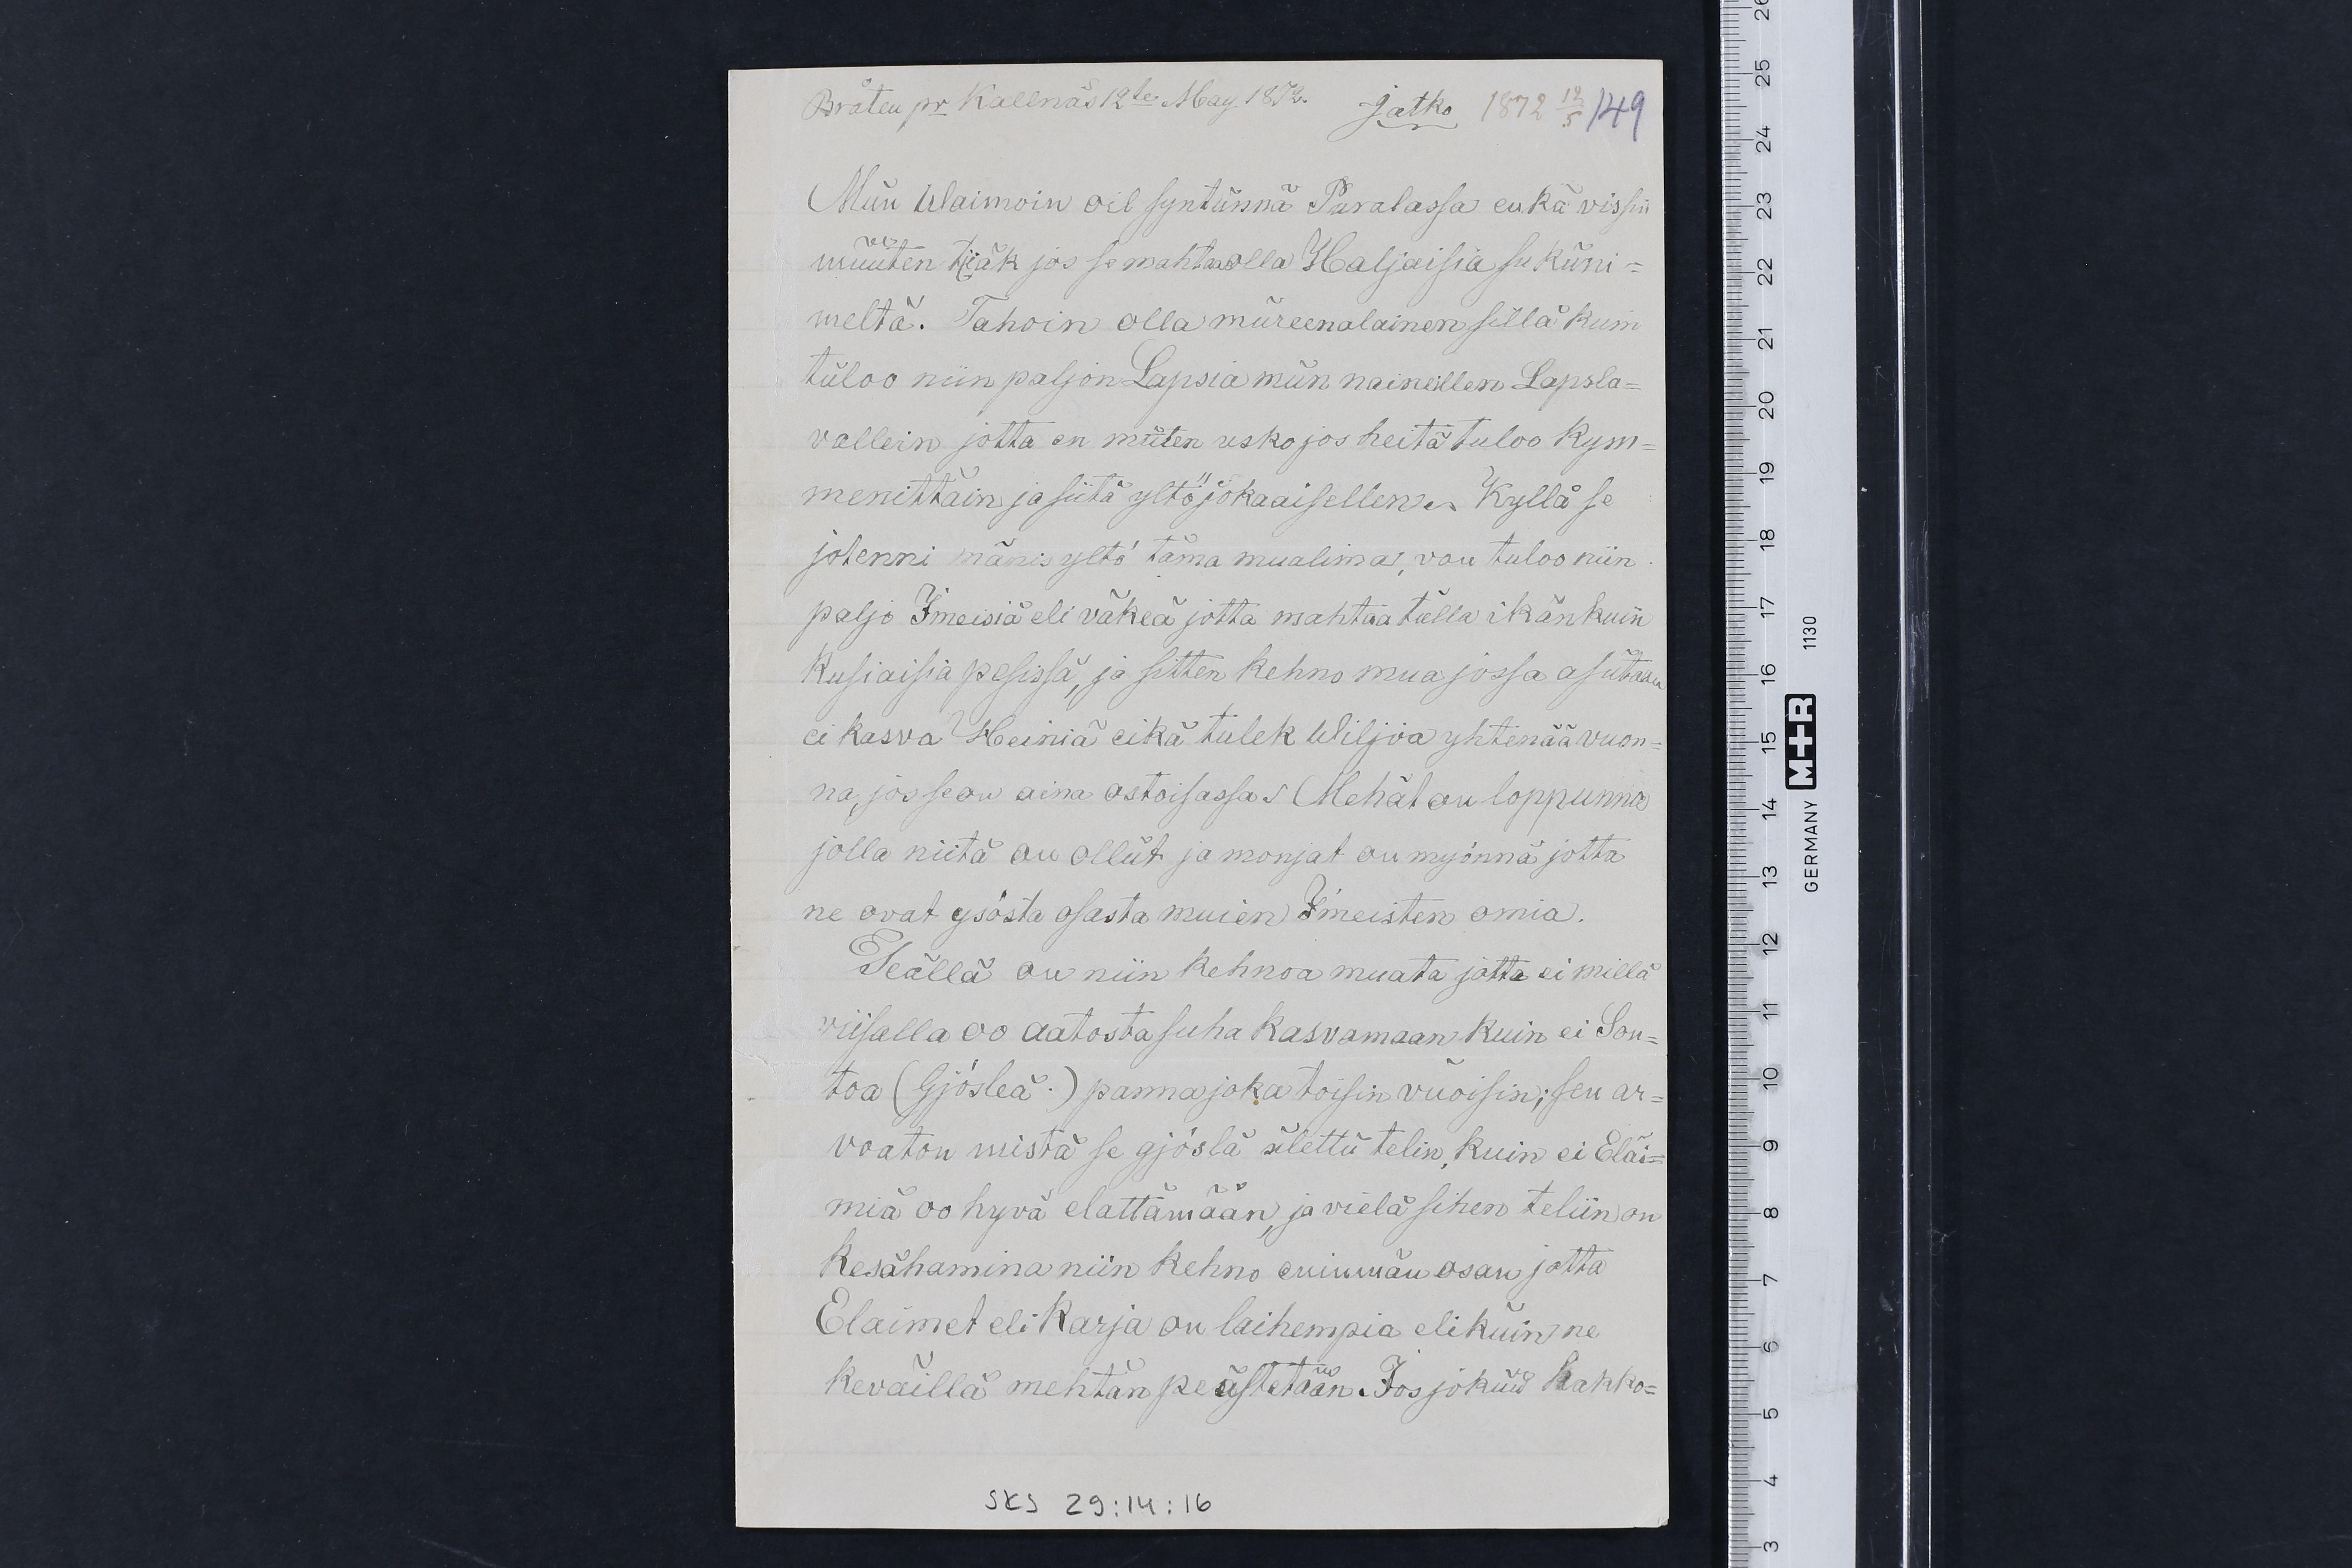 Bråten pr Kallnäs 12te May 1872. Jatko 1872 12/5 /49
Mŭn Waimoin oil syntŭnnä Puralassa enkä vissii
mŭŭten tijäk jos se mahtaa olla Haljaisia sukŭni=
meltä. Tahoin olla mŭreenalainen sillä kuin
tŭloo niin paljon Lapsia mŭn naineillen Lapsla=
vallein jotta en mŭten usko jos heitä tuloo kym=
menittäin ja siitä yltö jokaaisellen. Kyllä se
jotenni mänis yltö täma mualima, vou tuloo niin
paljo Imeisiä eli väkeä jotta mahtaa tŭlla ikänkuin
Kusiaisia pesissä, ja sitten kehno mua jossa asŭtaan
ei kasva Heiniä eikä tulek Wiljoa yhtenää vuon=
na, jos se ou aina ostoisassa. Mehät ou loppunna
jolla niitä ou ollŭt ja monjat ou myönnä jotta
ne ovat ysöstä osasta muien Imeisten omia.
Teällä ou niin kehnoa muata jotta ei millä
viisalla oo aatosta suha kasvamaan kuin ei Son=
toa (Gjösleä.) panna joka toisin vŭoisin; sen ar=
voaton mistä se gjöslä ŭlettŭ telin, kuin ei Eläi=
miä oo hyvä elattämään, ja vielä sihen teliin on
kesähamina niin kehno enimmän osan jotta
Elaimet eli Karja ou laihempia eli kŭin ne
keväillä mehtän peästetään. Jos jokŭŭ hakko=
SKS 29:14:16
26
25
24
23
22
21
20
19
18
17
16
15
14
13
12
11
10
9
8
7
6
5
4
3
GERMANY M+R 1130